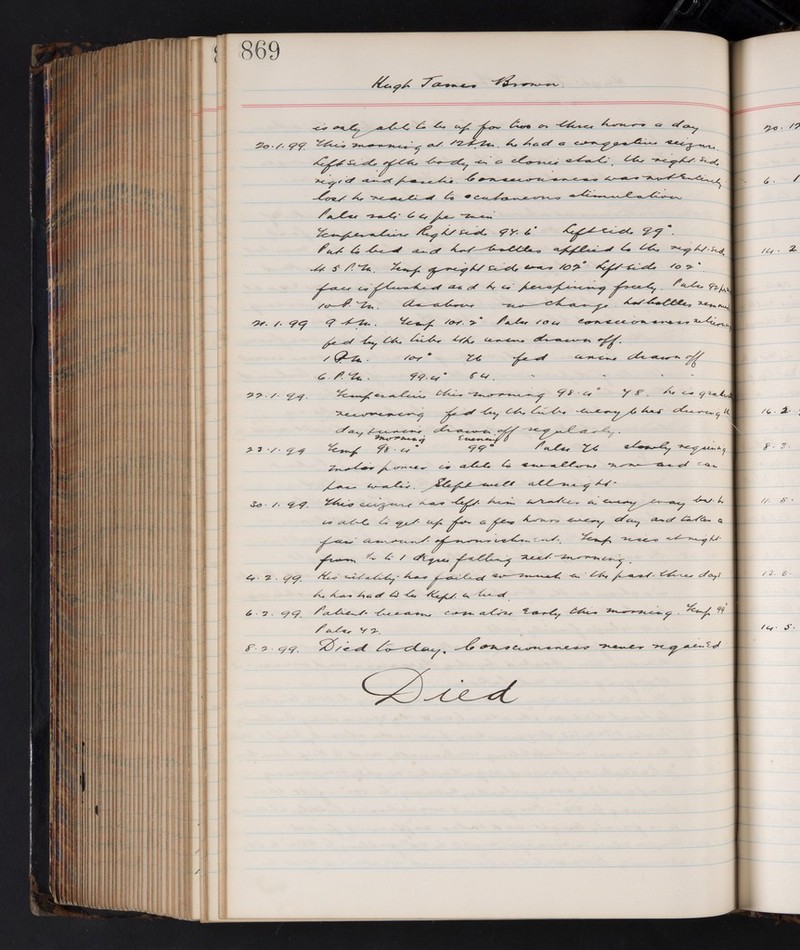 869
Hugh James Brown
is only able to be up for two or three hours a day
20.1.99. This morning at 12 he had a congestive seizure
Left side of the body in a clonic state, the right side
rigid and paretic Consciousness was not entirely
lost he reacted to cutaneous stimulation
Pulse rate 64 per min
Temperature Right side 97.6° Left side 99°.
Put to bed and hot bottles applied to the right side
4.5 P.M. Temp of right side was 102° Left side 102°
face is flushed and he is perspiring freely. Pulse 92
10 P.M. As above no change hot bottles
21.1.99 9 A.M. Temp 101.2° Pulse 104 consciousness
fed by the tube & the urine drawn off.
1 P.M. 101° 76 fed urine drawn off
6 P.M. 99.4° 84. " "
22.1.99. Temperature this morning 98.4° 78. he is
recovering fed by the tube every 6 hrs during the
day & urine drawn off regularly.
morning Evening
23.1.99 Temp 98.4° 99° Pulse 76 slowly regaining
motor power is able to swallow now and can
pass water. Slept well all night.
30.1.99. This seizure has left him weaker in every way but he
is able to get up for a few hours every day and takes a
fair amount of nourishment. Temp rises at night
from ½ to 1 degree falling next morning.
4.2.99. His vitality has failed so much in the past three days
he has had to be kept in bed.
6.2.99. Patient became comatose early this morning. Temp 99°
Pulse 42.
8.2.99. Died to day. Consciousness never regained
Died
20.12
6. 1
14. 2
16. 2.
8. 3.
11. 5.
12. 6.
14. 5.